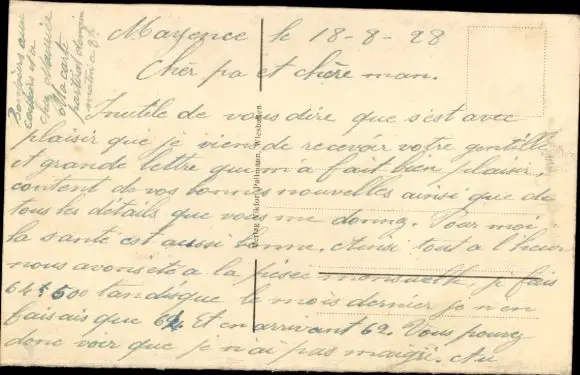 Mayence le 18-8-28
Chèr pa et chère man.
Inutile de vous dire que s'est avec
plaisir que je viens de recevoir votre gentille
et grande lettre qui m'a fait bien plaisir,
content de vos bonnes nouvelles ainsi que de
tous les détails que vous me donnez. Pour moi
la santé est aussi bonne. Ainsi tout a l'heure
nous avons été a la pesée mensuelle, je fais
64k500 tandisque le mois dernier je n'en
faisais que 64. Et en arrivant 62. Vous pouvez
donc voir que je n'ai pas maigri. Au
Bonjours aux
Maurice
Ma carte
partira demain
matin a 8h
Verlag Viktor Pallmann, Wiesbaden